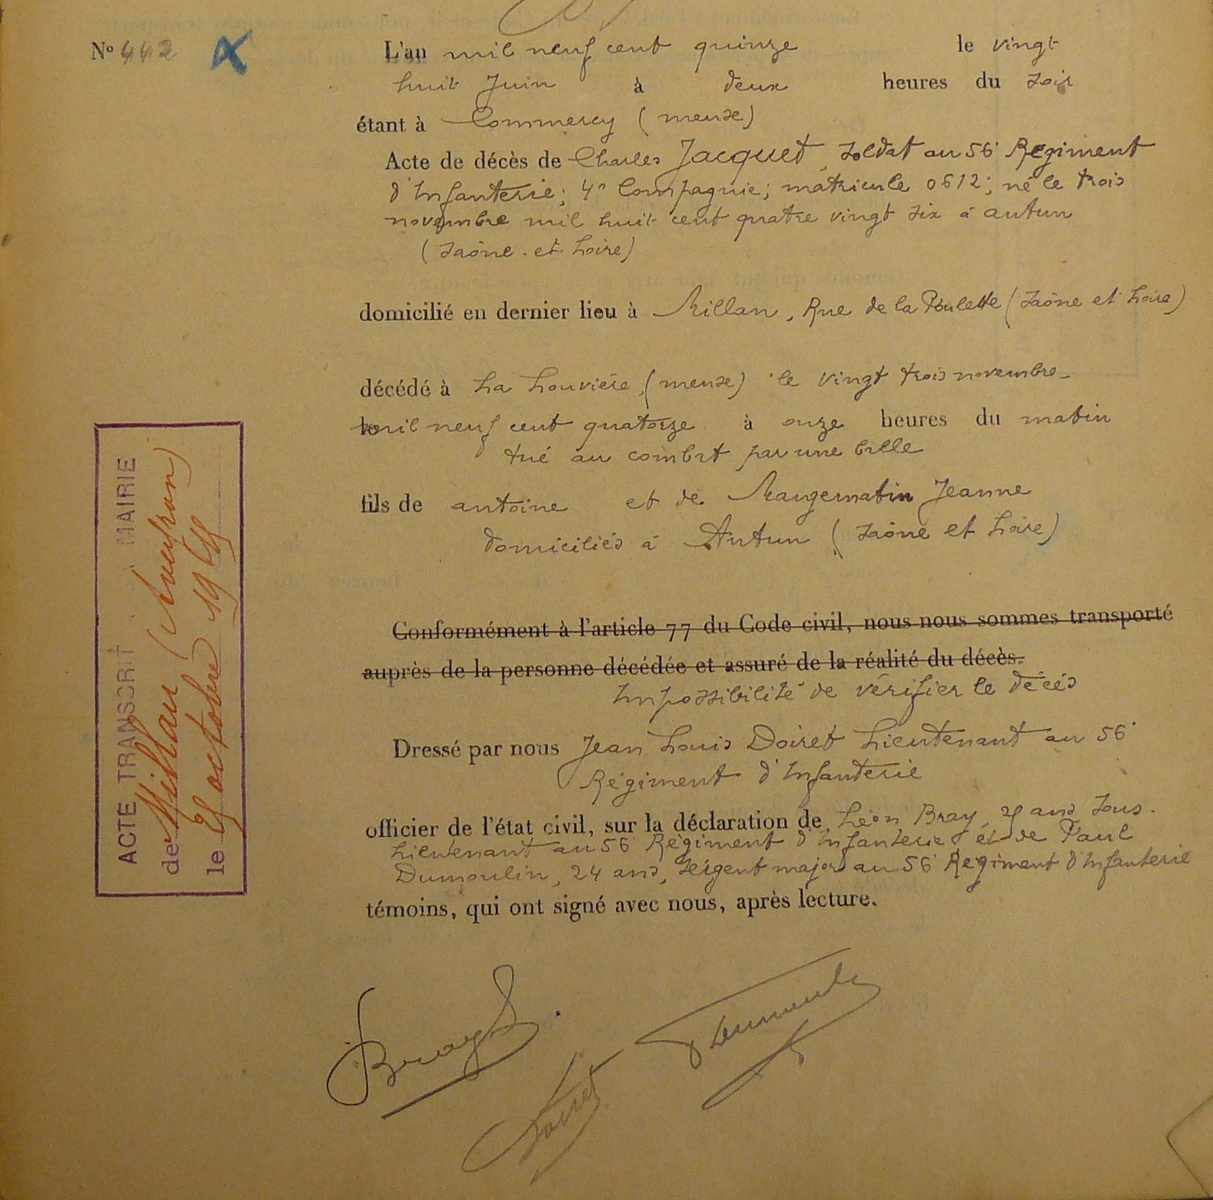 N° 442
L'an mil neuf cent quinze le vingt
huit Juin à deux heures du soir
étant à Commercy (meuse)
Acte de décès de Charles Jacquet, Soldat au 56e Régiment
d'Infanterie; 4e Compagnie; matricule 0612; né le trois
novembre mil huit cent quatre vingt six à autun
(Saône-et-Loire)
domicilié en dernier lieu à Millau, Rue de la Poulette (Saône et Loire)
décédé à La Louvière (meuse) le vingt trois novembre
mil neuf cent quatorze à onze heures du matin
tué au combat par une balle
fils de antoine et de Mangematin Jeanne
domiciliés à Autun (Saône et Loire)
Conformément à l'article 77 du Code civil, nous nous sommes transporté
auprès de la personne décédée et assuré de la réalité du décès.
Impossibilité de vérifier le décès
Dressé par nous Jean Louis Doiret Lieutenant au 56e
Régiment d'Infanterie
officier de l'état civil, sur la déclaration de Léon Bray, ans Sous-
Lieutenant au 56e Régiment d'Infanterie et de Paul
Dumoulin, 24 ans, Sergent major au 56e Régiment d'Infanterie
témoins, qui ont signé avec nous, après lecture.
ACTE TRANSCRIT MAIRIE
de Millau (Aveyron)
le octobre 19
Bray
Doiret
Dumoulin